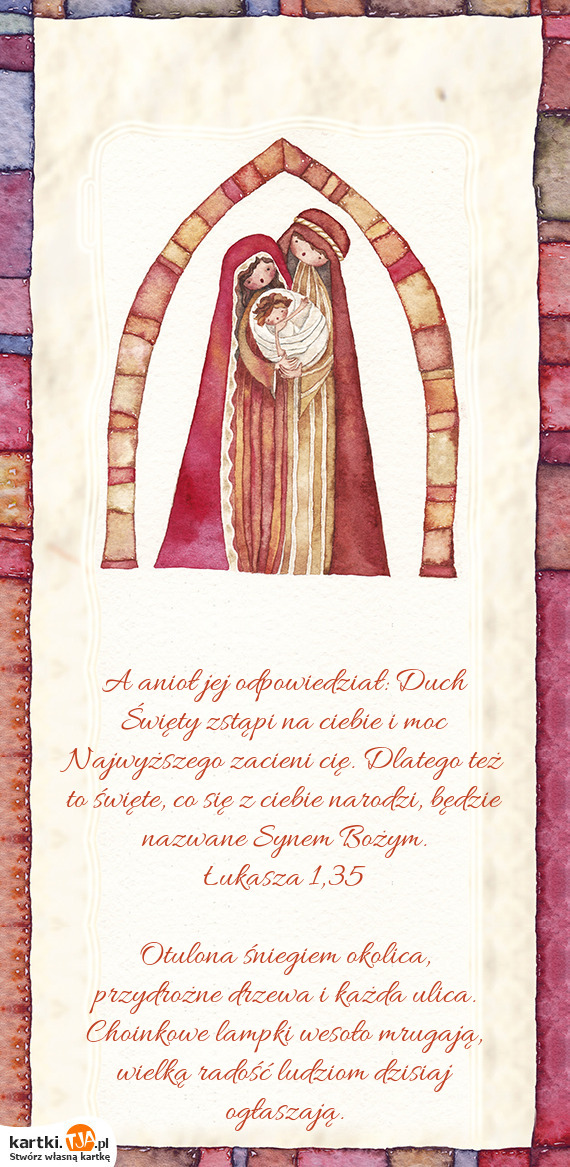 A anioł jej odpowiedział: Duch
Święty zstąpi na ciebie i moc
Najwyższego zacieni cię. Dlatego też
to święte, co się z ciebie narodzi, będzie
nazwane Synem Bożym.
Łukasza 1,35
Otulona śniegiem okolica,
przydrożne drzewa i każda ulica.
Choinkowe lampki wesoło mrugają,
wielką radość ludziom dzisiaj
ogłaszają.
kartki.TJA.pl
Stwórz własną kartkę